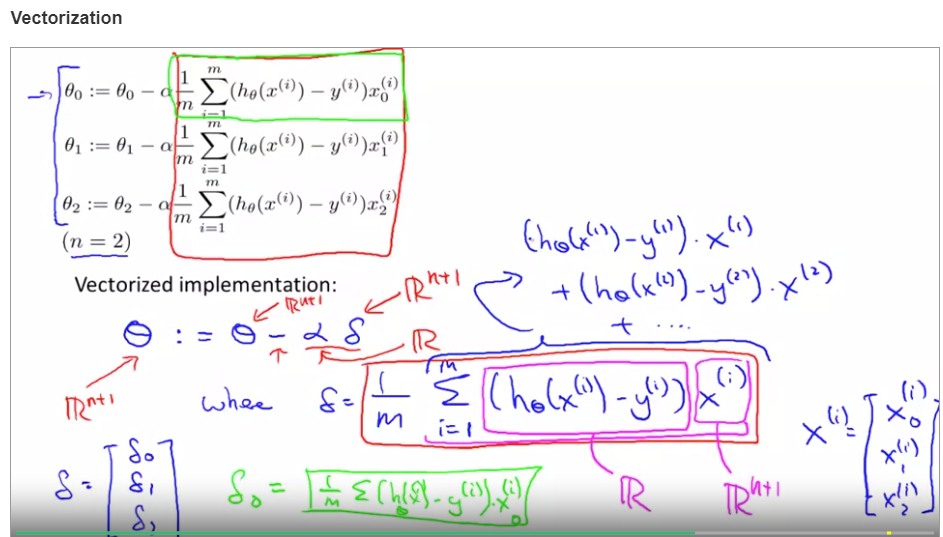 Vectorization
θ₀ := θ₀ − α 1/m ∑ᵢ₌₁ᵐ (h_θ(x⁽ⁱ⁾) − y⁽ⁱ⁾)x₀⁽ⁱ⁾
θ₁ := θ₁ − α 1/m ∑ᵢ₌₁ᵐ (h_θ(x⁽ⁱ⁾) − y⁽ⁱ⁾)x₁⁽ⁱ⁾
θ₂ := θ₂ − α 1/m ∑ᵢ₌₁ᵐ (h_θ(x⁽ⁱ⁾) − y⁽ⁱ⁾)x₂⁽ⁱ⁾
(n = 2)
(h_θ(x⁽¹⁾) − y⁽¹⁾) · x⁽¹⁾
+ (h_θ(x⁽²⁾) − y⁽²⁾) · x⁽²⁾
+ ....
Vectorized implementation:
ℝⁿ⁺¹ ℝⁿ⁺¹
θ := θ − α δ ℝ
ℝⁿ⁺¹
where δ = 1/m ∑ᵢ₌₁ᵐ (h_θ(x⁽ⁱ⁾) − y⁽ⁱ⁾) x⁽ⁱ⁾
x⁽ⁱ⁾ = [x₀⁽ⁱ⁾ x₁⁽ⁱ⁾ x₂⁽ⁱ⁾]
δ = [δ₀ δ₁ δ₂]
δ₀ = 1/m ∑ (h_θ(x⁽ⁱ⁾) − y⁽ⁱ⁾) · x₀⁽ⁱ⁾
ℝ ℝⁿ⁺¹